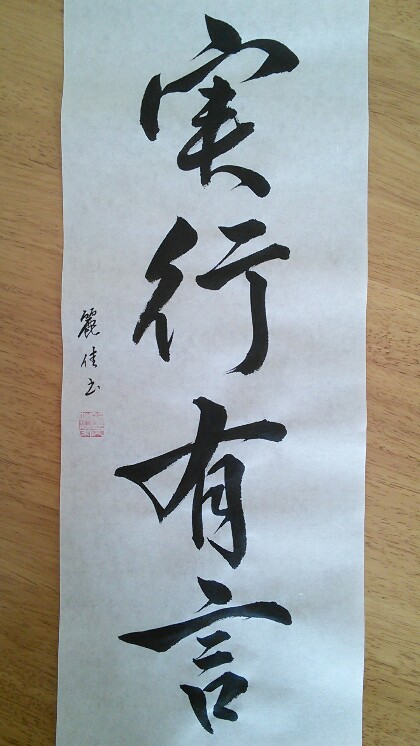 実行有言
麗佳书